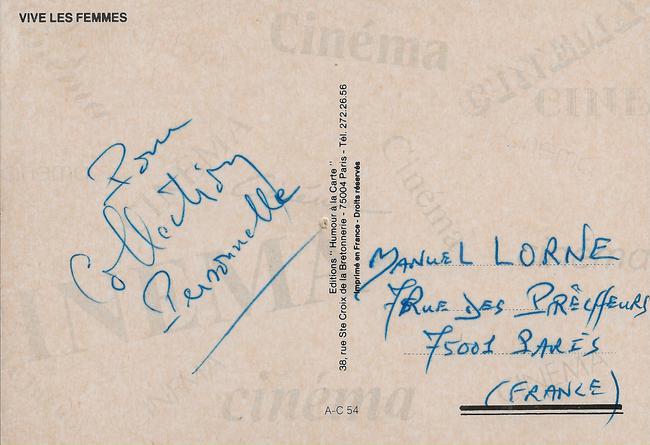 VIVE LES FEMMES
Cinéma
Pour
Collection
Personnelle
Editions " Humour à la Carte "
38, rue Ste Croix de la Bretonnerie - 75004 Paris - Tél. 272.26.56
Imprimé en France - Droits réservés
MANUEL LORNE
7 RUE DES PRÊCHEURS
75001 PARIS
(FRANCE)
Cinéma
cinéma
A-C 54